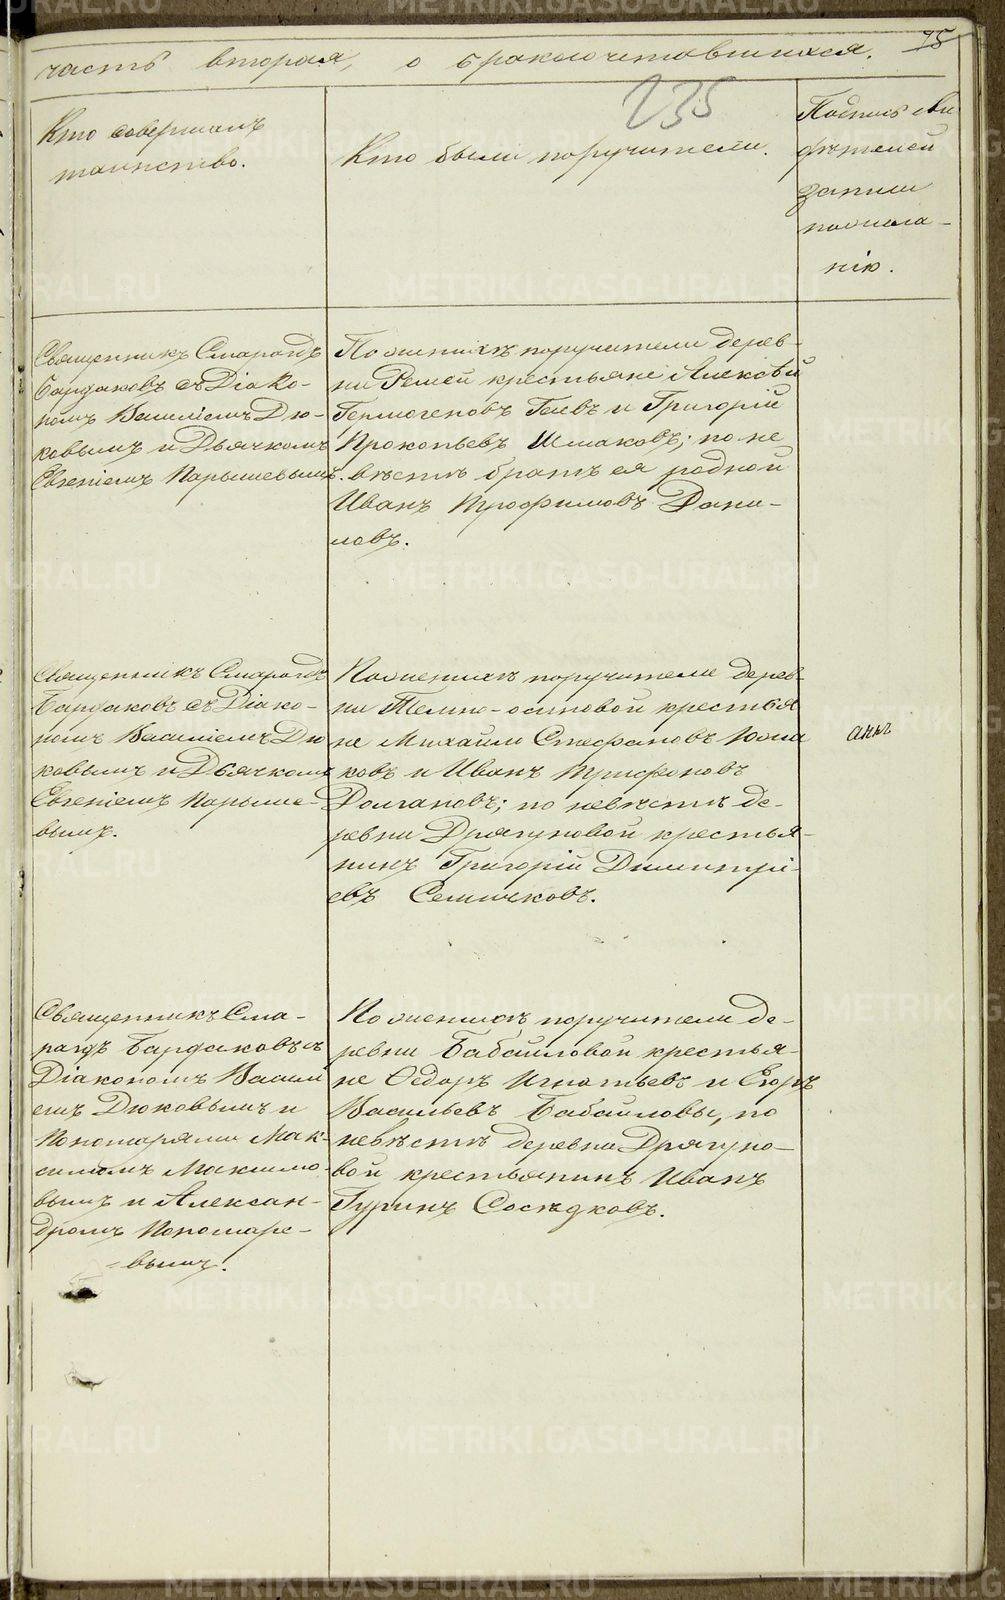 75
часть вторая, о бракосочетавшихся.
235
Кто совершалъ
таинство.
Кто были поручители.
Подпись сви
дѣтелей
записи
по желанію.
Священникъ Смарагдъ
Бардаковъ съ Діако-
номъ Василіемъ Дю-
ковымъ и Дьячкомъ
Евгеніемъ Парышевымъ.
По женихѣ поручители дерев-
ни Режей крестьяне Алексѣй
Гермогеновъ Гаевъ и Григорій
Прокопьевъ Шмаковъ; по не
вѣстѣ братъ ея родной
Иванъ Трофимовъ Дани-
ловъ.
Священникъ Смарагдъ
Бардаковъ съ Діако-
номъ Василіемъ Дю
ковымъ и Дьячкомъ
Евгеніемъ Парыше-
вымъ.
По женихѣ поручители дерев-
ни Темно-осиновой крестья
не Михайло Стефановъ
ковъ и Иванъ Трифоновъ
Долгановъ; по невѣстѣ де-
ревни Дрягуновой крестья-
нинъ Григорій Димитрі-
евъ Семячковъ.
Священникъ Сма-
рагдъ Бардаковъ съ
Діакономъ Василі
емъ Дюковымъ и
Пономарями Мак-
симомъ Максимо-
вымъ и Алексан-
дромъ Пономаре-
вымъ.
По женихѣ поручители де-
ревни Бабаиловой крестья-
не Ѳедоръ Игнатьевъ и Егоръ
Васильевъ Бабаиловы, по
невѣстѣ деревни Дрягуно-
вой крестьянинъ Иванъ
Гуринъ Сосѣдковъ.
METRIKI.GASO-URAL.RU